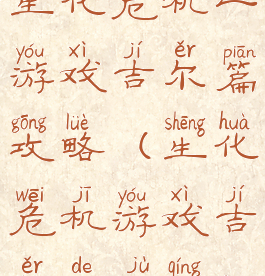 生化危机二
yóu xì jí ěr piān
游戏吉尔篇
gōng lüè shēng huà
攻略（生化
wēi jī yóu xì jí
危机游戏吉
ěr de jù qíng